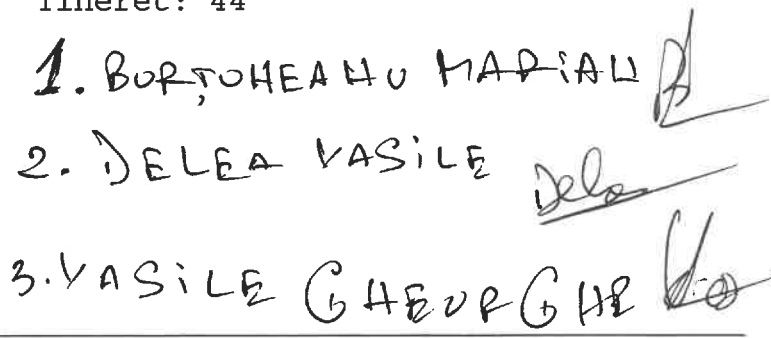 Tineret: 44
1. BORȚOHEANU MARIAN
2. DELEA VASILE Dele
3. VASILE GHEORGHE